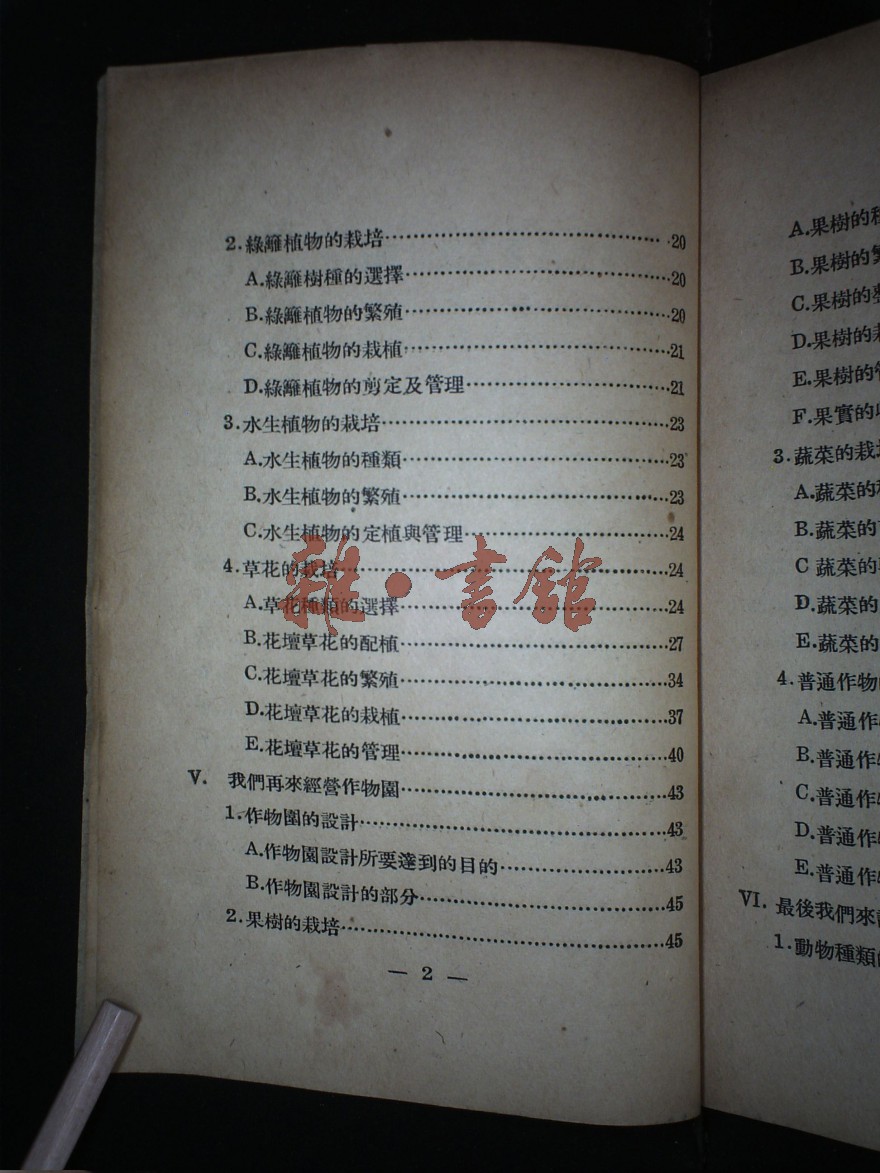 2.綠籬植物的栽培……20
A.綠籬樹種的選擇……20
B.綠籬植物的繁殖……20
C.綠籬植物的栽植……21
D.綠籬植物的剪定及管理……21
3.水生植物的栽培……23
A.水生植物的種類……23
B.水生植物的繁殖……23
C.水生植物的定植與管理……24
4.草花的栽培……24
A.草花種類的選擇……24
B.花壇草花的配植……27
C.花壇草花的繁殖……34
D.花壇草花的栽植……37
E.花壇草花的管理……40
V. 我們再來經營作物園……43
1.作物園的設計……43
A.作物園設計所要達到的目的……43
B.作物園設計的部分……45
2.果樹的栽培……45
— 2 —
雜·書館
A.果樹的
B.果樹的
C.果樹的
D.果樹的
E.果樹的
F.果實的
3.蔬菜的栽
A.蔬菜的
B.蔬菜的
C 蔬菜的
D.蔬菜的
E.蔬菜的
4.普通作物
A.普通作
B.普通作
C.普通作
D.普通作
E.普通作
VI. 最後我們來
1.動物種類